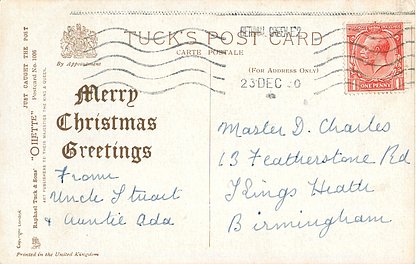 TUCK'S POST CARD
CARTE POSTALE
By Appointment
(FOR ADDRESS ONLY)
23 DEC
ONE PENNY
JUST CAUGHT THE POST
Postcard No. 1006
"OILETTE"
Raphael Tuck & Sons'
ART PUBLISHERS TO THEIR MAJESTIES THE KING & QUEEN.
Merry
Christmas
Greetings
From
Uncle Stuart
& Auntie Ada
Master D. Charles
13 Featherstone Rd
Kings Heath
Birmingham
Printed in the United Kingdom